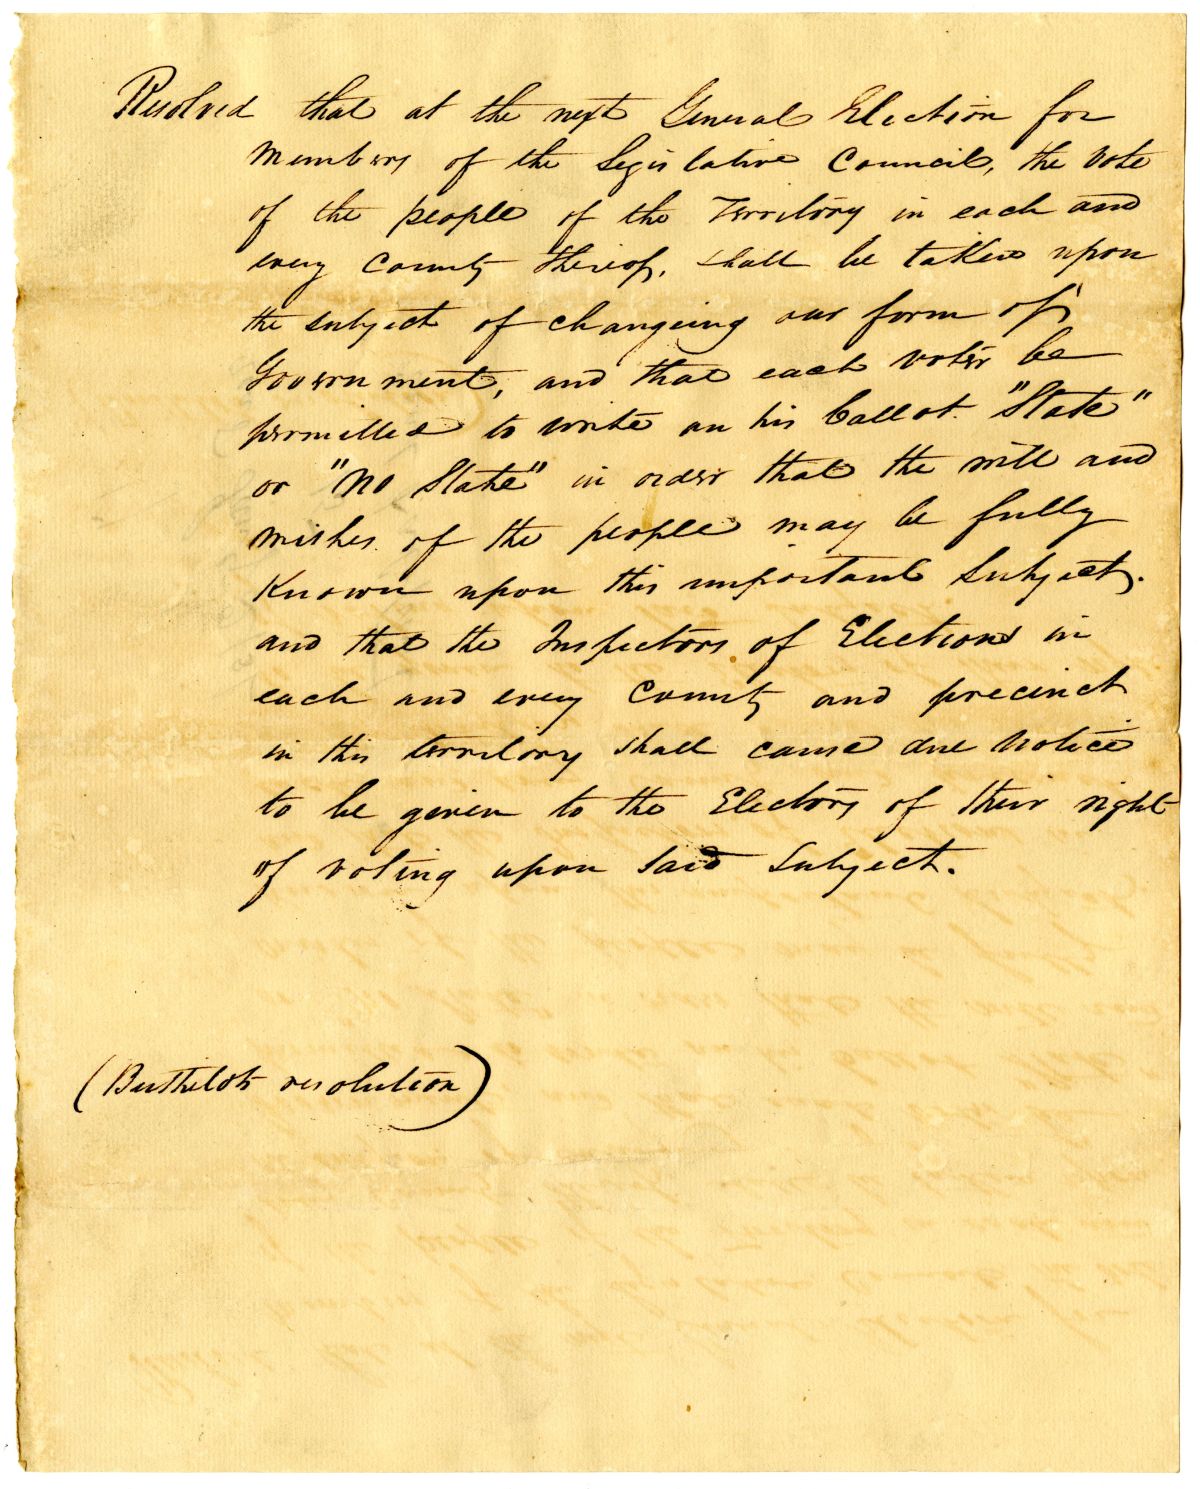 Resolved that at the next General Election for
Members of the Legislative Council, the vote
of the people of the Territory in each and
every County thereof, shall be taken upon
the subject of changeing our form of
Government, and that each voter be
permitted to write on his Ballot "State"
or "No State" in order that the will and
wishes of the people may be fully
Known upon this important Subject.
and that the Inspectors of Elections in
each and every County and precinct
in this territory shall cause due notice
to be given to the Electors of their right
of voting upon said Subject.
( resolution)